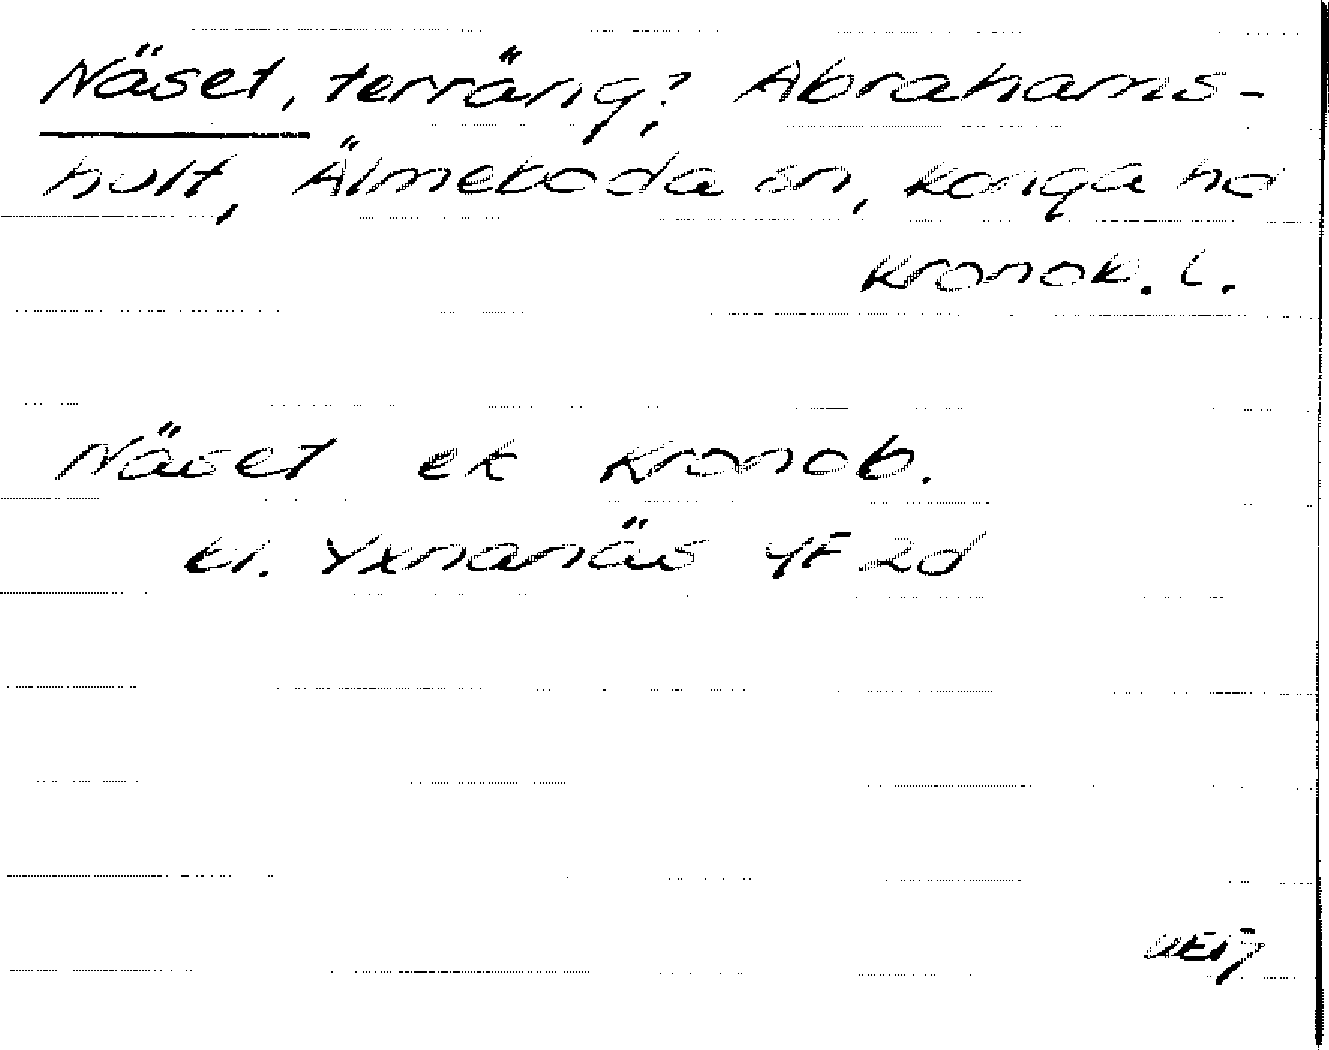 Näset, terräng?, Abrahams-
hult, Älmeboda sn, Konga hd
Kronob. l.
Näset ek Kronob.
bl. Yxnanäs 4F 2d